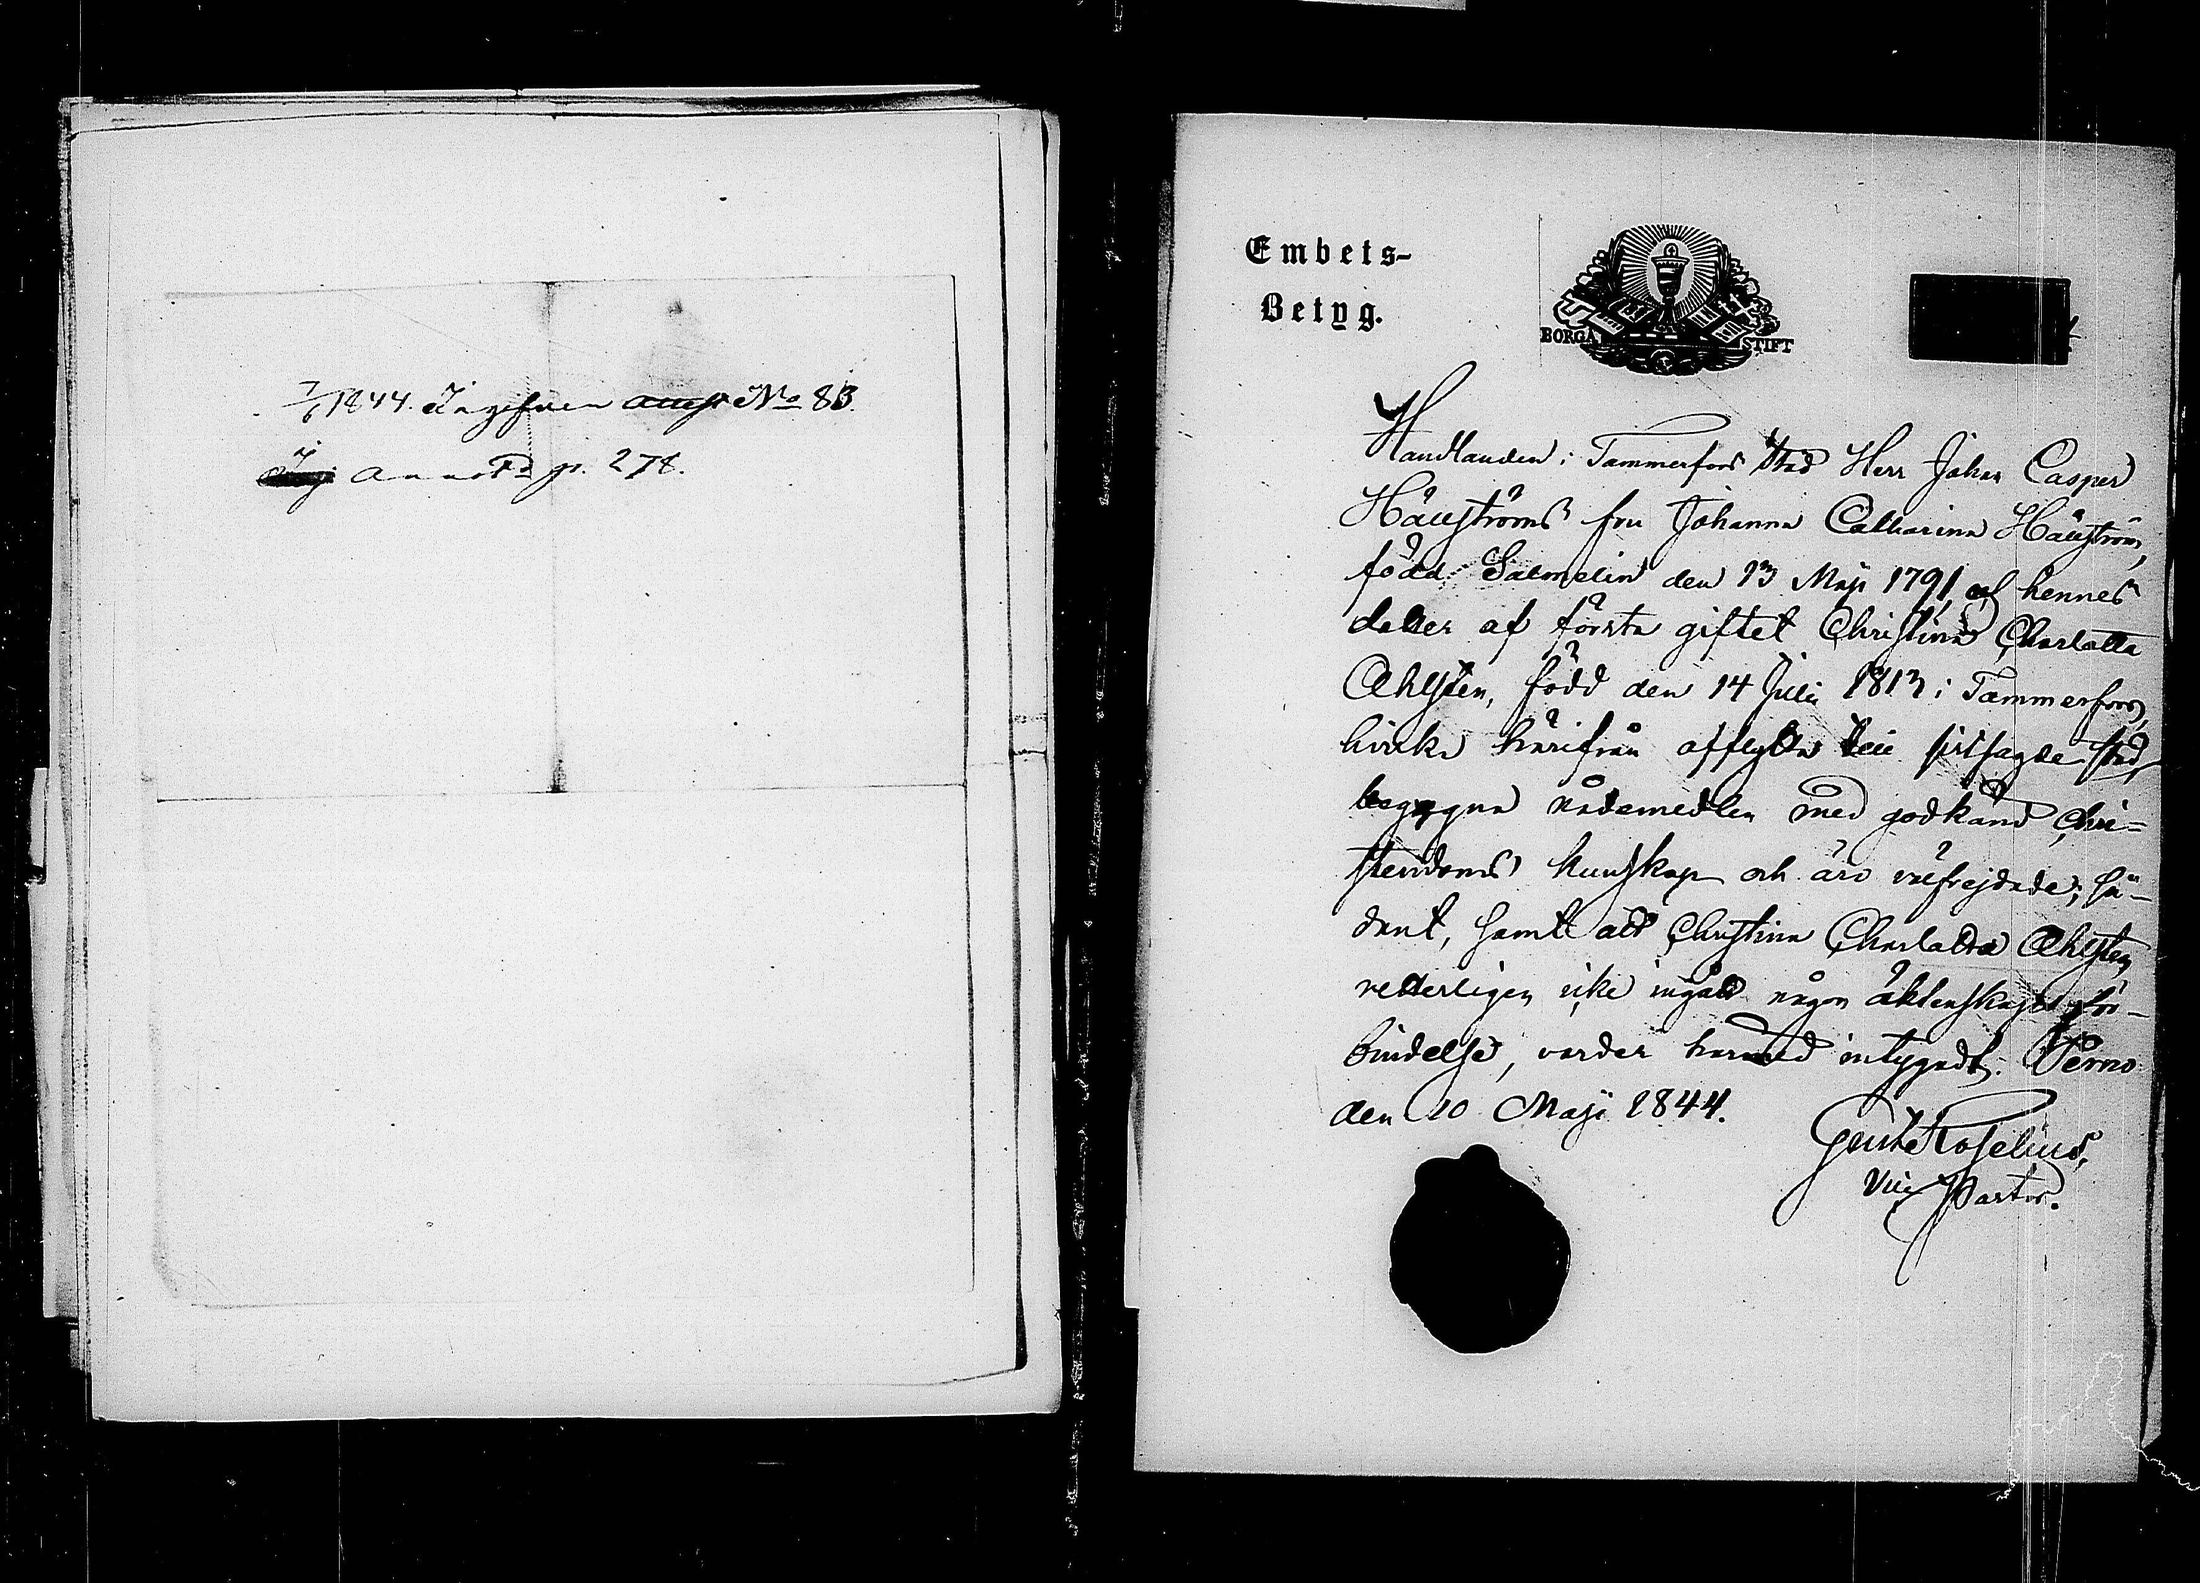 7/6 1844. Ingifven No 83
Annot. p. 278.
Embets-
Betyg.
BORGÅ STIFT
Handlanden i Tammerfors Stad Herr Johan Casper
Häggströms fru Johanna Catharina Häggström,
född Salmelin den 13 Maji 1791 och hennes
dotter af första giftet Christina Charlotta
Ahlsten, född den 14 Juli 1813 i Tammerfors,
hvilka härifrån afflytta till sistsagde stad,
begagna nådemedlen med godkänd Chri-
stendoms kunskap och äro välfrejdade; så-
dant, samt att Christina Charlotta Ahlsten
vetterligen icke ingått någon äktenskaps för-
bindelse, varder härmed intygadt. Perno
den 10 Maji 1844.
Gust. Roselius,
Vice Pastor.